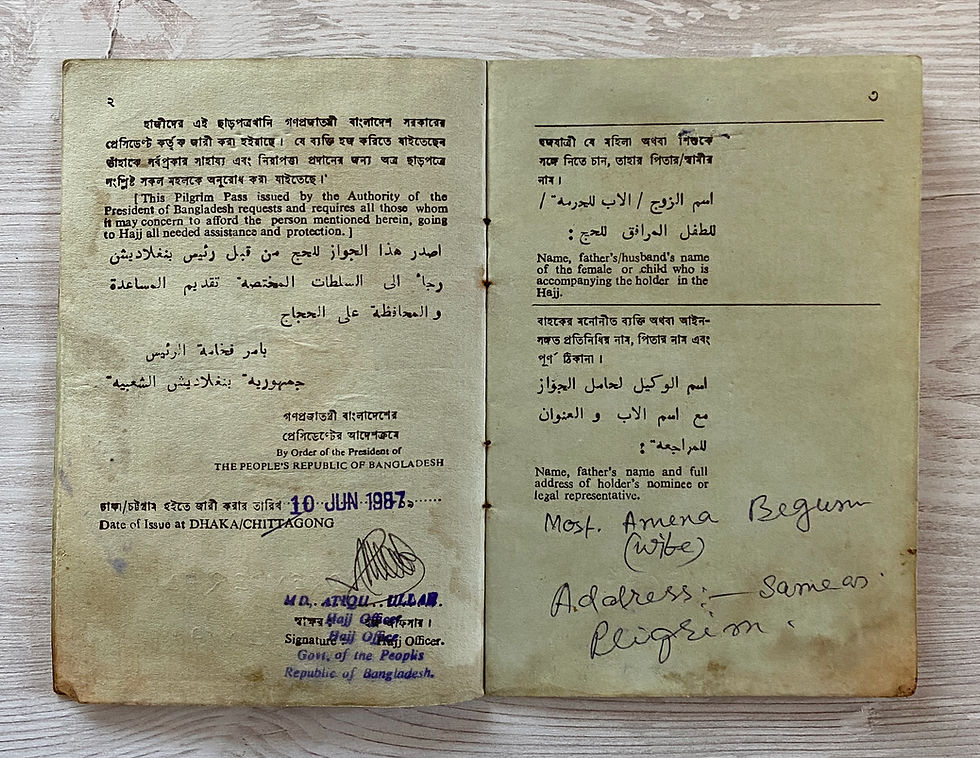 ২
হাজীদের এই ছাড়পত্রখানি গণপ্রজাতন্ত্রী বাংলাদেশ সরকারের
প্রেসিডেণ্ট কর্তৃক জারী করা হইয়াছে। যে ব্যক্তি হজ করিতে যাইতেছেন
তাঁহাকে সর্বপ্রকার সাহায্য এবং নিরাপত্তা প্রদানের জন্য অত্র ছাড়পত্রে
সংশ্লিষ্ট সকল মহলকে অনুরোধ করা যাইতেছে।'
[This Pilgrim Pass issued by the Authority of the
President of Bangladesh requests and requires all those whom
it may concern to afford the person mentioned herein, going
to Hajj all needed assistance and protection.]
اصدر هذا الجواز للحج من قبل رئيس بنغلاديش
رجاً الى السلطات المختصة تقديم المساعدة
و المحافظة على الحجاج
بامر فخامة الرئيس
جمهورية بنغلاديش الشعبية
গণপ্রজাতন্ত্রী বাংলাদেশের
প্রেসিডেণ্টের আদেশক্রমে
By Order of the President of
THE PEOPLE'S REPUBLIC OF BANGLADESH
ঢাকা/চট্টগ্রাম হইতে জারী করার তারিখ 10 JUN 1987
Date of Issue at DHAKA/CHITTAGONG
MD. ATIQU ULLAH.
Hajj Officer
Hajj Office
Signature Hajj Officer.
Govt. of the Peoples
Republic of Bangladesh.
৩
হজযাত্রী যে মহিলা অথবা শিশুকে
সঙ্গে নিতে চান, তাহার পিতার/স্বামীর
নাম।
اسم الزوج / الاب للحرمة /
للطفل المرافق للحج :
Name, father's/husband's name
of the female or child who is
accompanying the holder in the
Hajj.
বাহকের মনোনীত ব্যক্তি অথবা আইন-
সঙ্গত প্রতিনিধির নাম, পিতার নাম এবং
পূর্ণ ঠিকানা।
اسم الوكيل لحامل الجواز
مع اسم الاب و العنوان
للمراجعة :
Name, father's name and full
address of holder's nominee or
legal representative.
Most. Amena Begum
(wife)
Address:— Same as
Pligrim.